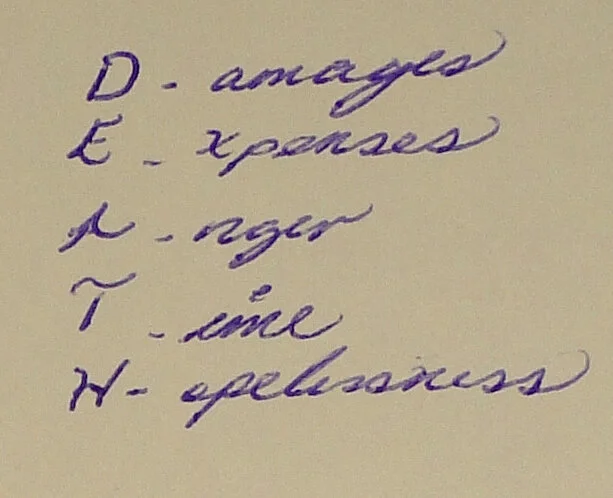 D - amages
E - xpenses
A - nger
T - ime
H - opelessness